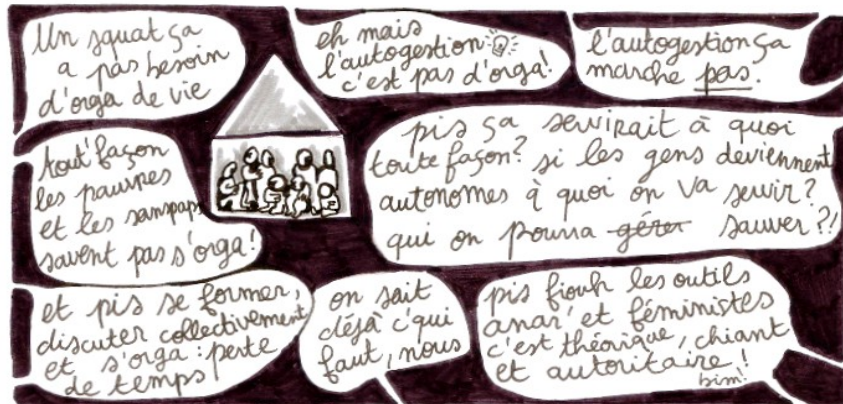 Un squat ça
a pas besoin
d'orga de vie
eh mais
l'autogestion
c'est pas d'orga!
l'autogestion ça
marche pas.
tout'façon
les pauvres
et les sanspaps
savent pas s'orga!
pis ça servirait à quoi
toute façon? si les gens deviennent
autonomes à quoi on va servir?
qui on pourra gérer sauver?!
et pis se former,
discuter collectivement
et s'orga: perte
de temps
on sait
déjà c'qui
faut, nous
pis fiouh les outils
anar' et féministes
c'est théorique, chiant
et autoritaire!
bim!